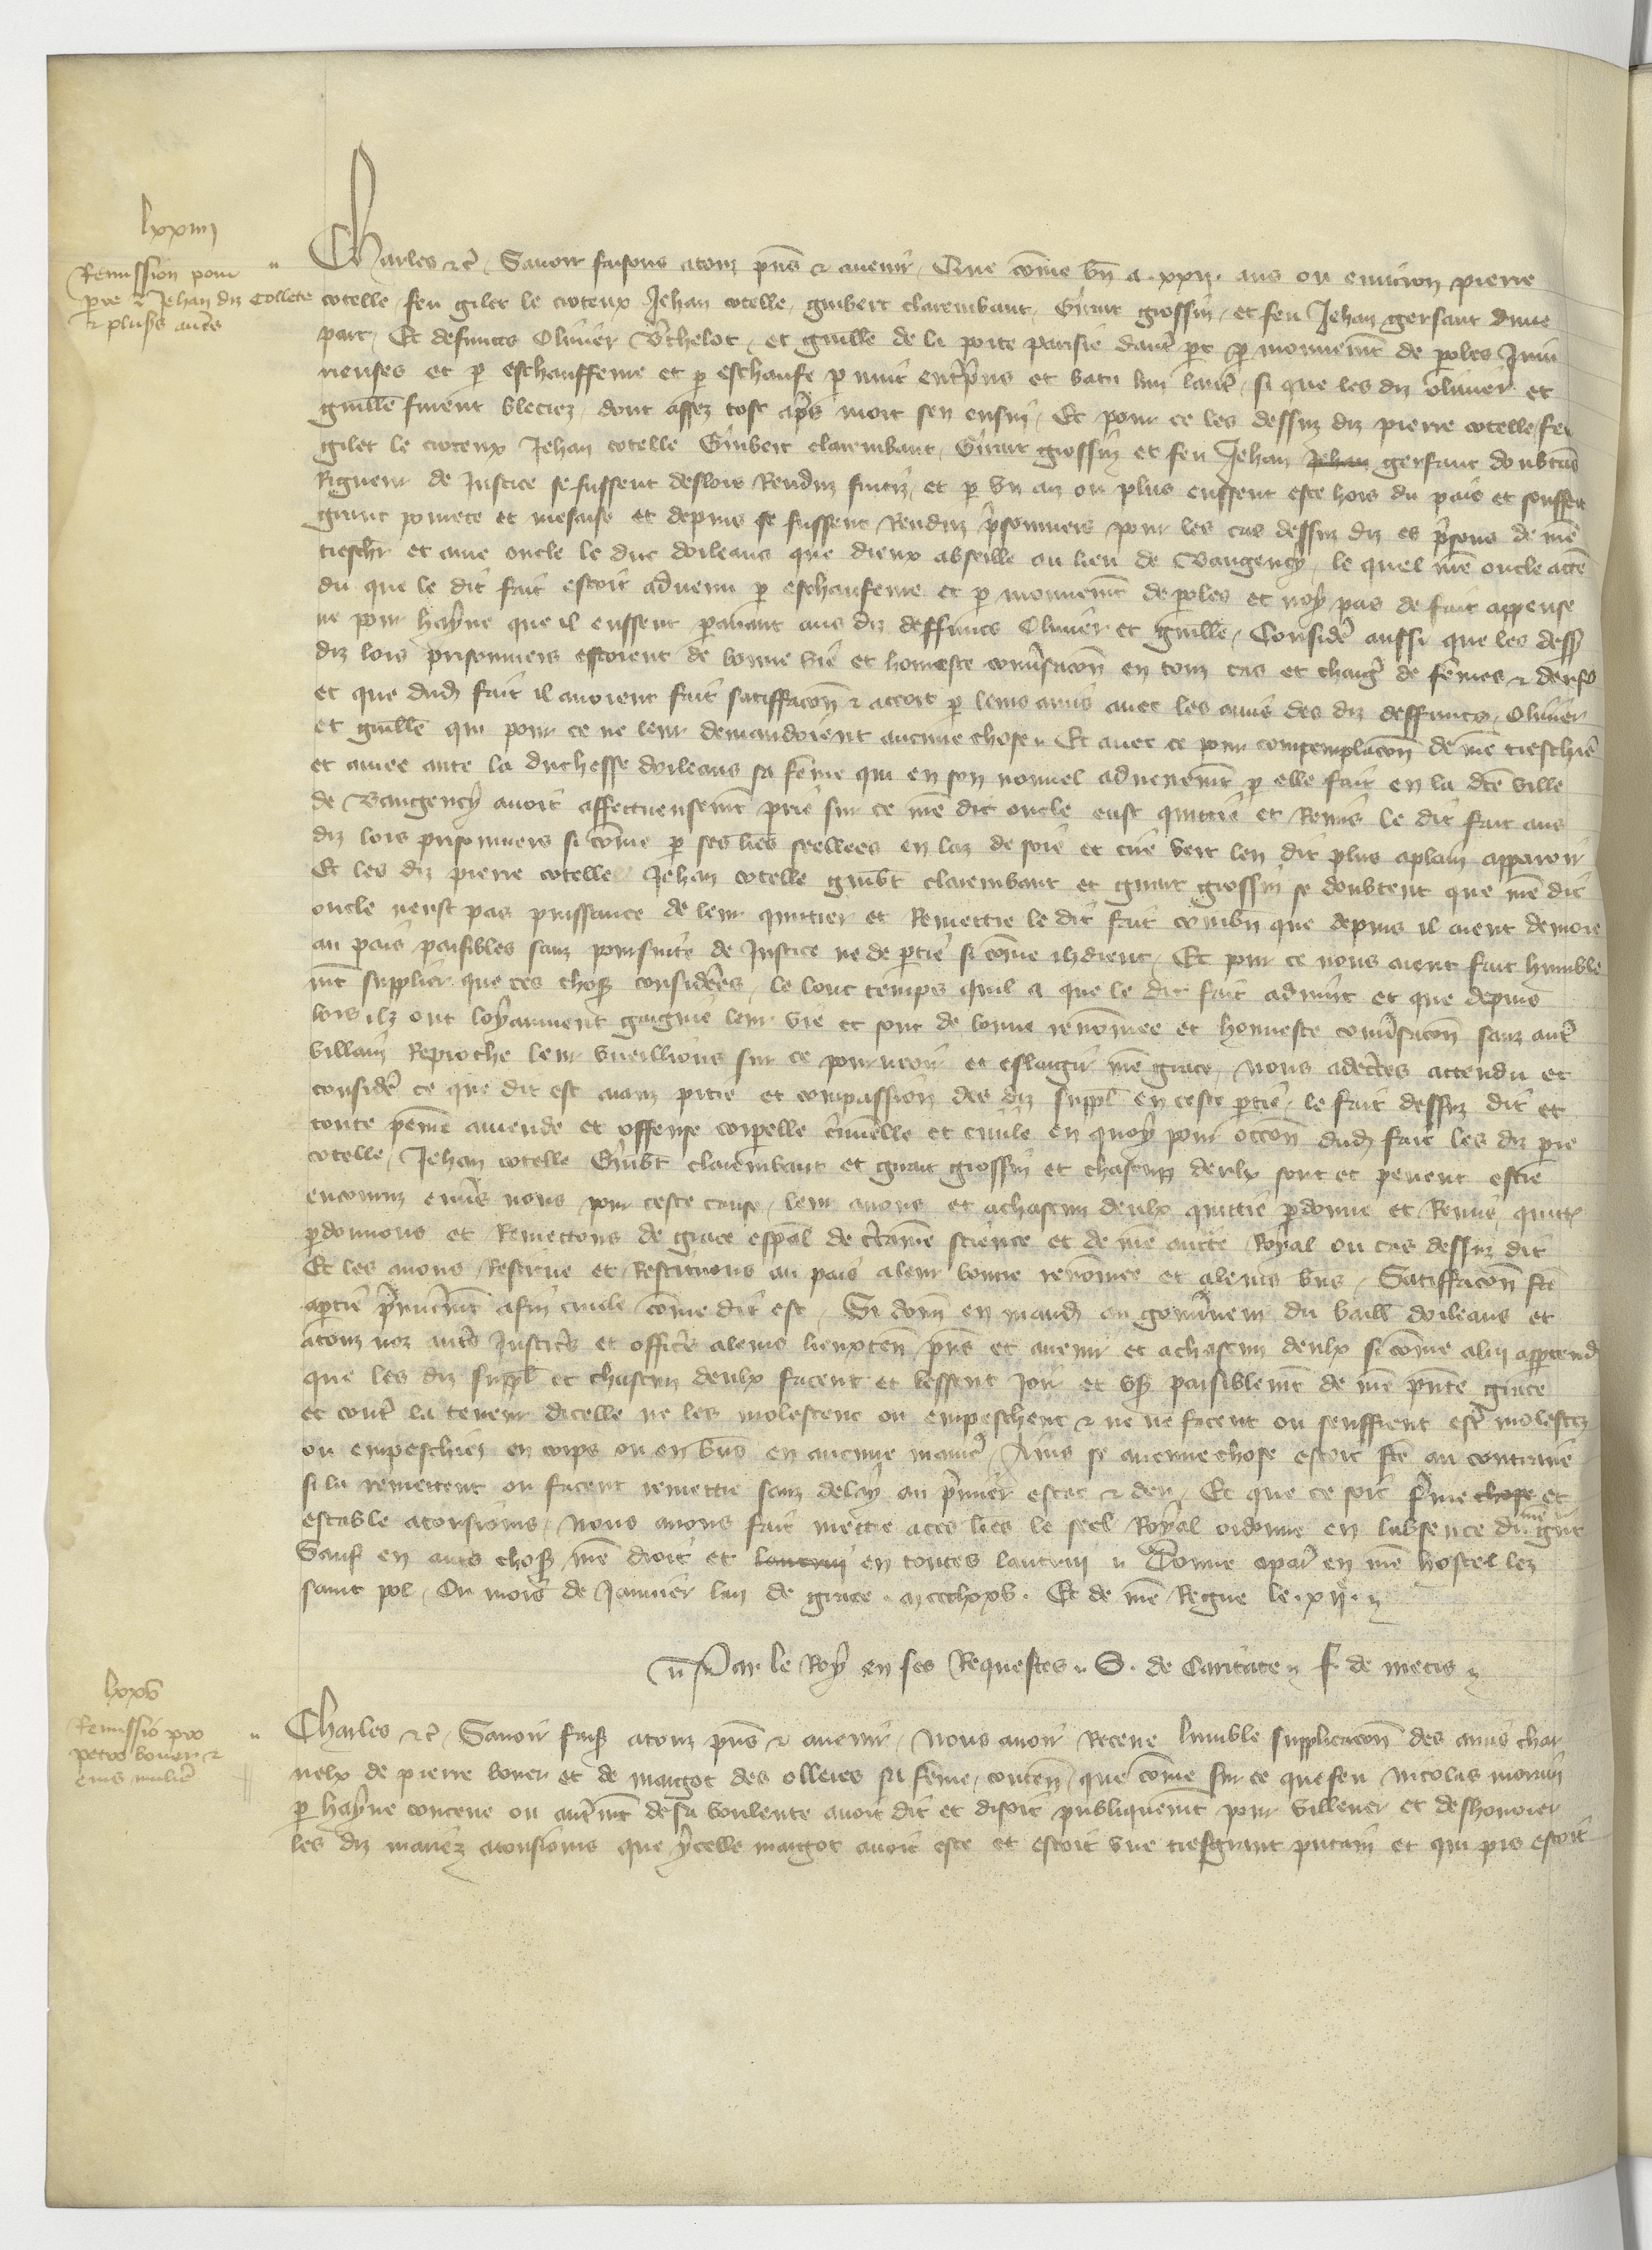 lxxiiij
Remission pour
pre & Jehan diz Collete
& plus's aut's
Charles &c. Savoir faisons a touz pns & avenir Que come bn a xxij ans ou environ pierre
cotelle feu gilet le cioteux Jehan cotelle guibert clarembaut Girart grossin et feu Jehan gersant dune
part Et defuncts Olivier B'thelot et guille de la porte parisie daut' pt p mouvemt de poles Iniu
rieuses et p eschauffeure et p eschaufe p nuit ent'pns et batu lun laut' si que les diz olivier et
guille furent bleciez dont assez tost ap's mort sen ensui Et pour ce les dessuz diz pierre cotelle feu
gilet le cioteux Jehan cotelle Guibert clarembaut Girart grossin et feu Jehan Jehan gersant doubtans
Rigueur de Justice se fussent deslors Renduz fuitiz et p un an ou plus eussent este hors du pais et souffert
grant povrete et mesaise et depuis se fussent Renduz p'sonniers pour les cas dessuz diz es p'sons de nre
treschr et ame oncle le duc dorleans que dieux absoille ou lieu de Baugency le quel nre oncle atten
du que le dit fait estoit advenu p eschaufeure et p mouvemt de poles et noy pas de fait appense
ne pour hayne que il eussent p avant aus diz deffuncts Olivier et guille Consider' aussi que les dess
diz lors prisonniers estoient de bonne vie et honneste conv'sacon en touz cas et chargies de femes & denfs
et que dud fait il avoient fait satiffacon & accort p leurs amis avec les amis des diz deffuncts Olivier
et guille qui pour ce ne leur demandoient aucune chose Et avec ce pour contemplacon de nre treschie
et amee ante la duchesse dorleans sa feme qui en son nouvel advenemt p elle fait en la dte ville
de Baugency avoit affectueusemt prie sur ce nre dit oncle eust quittie et Remis le dit fait aus
diz lors prisonniers si come p ses lres seellees en laz de soie et cire vert len dit plus aplain apparoir
Et les diz pierre cotelle Jehan cotelle guibt clarembaut et girart grossin se doubtent que nre dit
oncle neust pas puissance de leur quittier et Remettre le dit fait combn que depuis il aient demore
au pais paisibles sanz poursuite de Justice ne de ptie si come ilz dient Et pour ce nous aient fait humble
mt supplier que ces choses considerees le lonc temps quil a que le dit fait advint et que depuis
lors ilz ont loyaument gaigne leur vie et sont de bonne renomee et honneste conv'sacon sanz aut'
villain Reproche leur vueillions sur ce pourveoir et eslargir nre grace nous adec'tes attendu et
consider' ce que dit est aianz pitie et compassion des diz suppl en ceste ptie le fait dessuz dit et
toute peine amende et offense corpelle c'iminelle et civile en quoy pour occon dud fait les diz pre
cotelle Jehan cotelle Guibt clarembaut et girart grossin et chascun deulx sont et peuent estre
encouruz env's nous pour ceste cause leur avons et a chascun deulx quittie pdonne et Remis quitt's
pdonnons et Remettons de grace espal de c'tame science et de nre aucte Royal ou cas dessuz dit
Et les avons Restitue et Restituons au pais a leur bonne renomee et a leurs bns Satiffacon fte
a ptie p'mieremt a fin civile come dit est Si donn en mand au gouv'neur du baill dorleans et
a touz noz aut's Justic's et offic's a leurs lieuxten pns et avenir et a chascun deulx si come a lui apptend
que les diz suppl et chascun deulx facent et lessent joir et user paisiblemt de nre pnte grace
et cont' la teneur dicelle ne les molestent ou empeschent & ne ne facent ou seuffrent est' molestez
ou empeschiez en corps ou en bns en aucune manie' Ains se aucune chose estoit fte au contraire
si la remettent ou facent remettre sanz delay au p'mier estat & deu Et que ce soit f'me chose et
estable a tousiours Nous avons fait mettre a ces lres le seel Royal ordonne en labsence du nre gnt
Sauf en aut's choses nre droit et lautrui en toutes lautrui Donne a par' en nre hostel lez
saint pol Ou mois de Janvier lan de grace m ccclxxv Et de nre Regne le xije
Par le Roy en ses Requestes S. de Caritate f. de metis
lxxv
Remissio pro
petro bover &
eius mulier'
Charles &c. Savoir faisons a touz pns & avenir Nous avoir Receue lumble supplicacon des amis char
nelx de pierre bover et de margot des olleres sa feme conten que come sur ce que feu nicolas morin
p hayne conceue ou aut'mt de sa voulente avoit dit et disoit publiquemt pour villener et deshonorer
les diz mariez a tousiours que ycelle margot avoit este et estoit une tresgrant putain et qui pis estoit